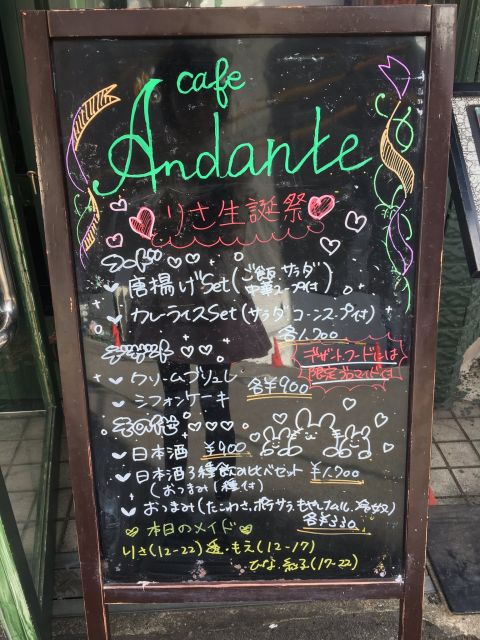 cafe
Andante
りさ生誕祭
フード
唐揚げset(ご飯 サラダ
中華スープ付)
カレーライスset(サラダ コーンスープ付)
各1,700
デザート
デザート フードには
限定ブロマイド付
クリームブリュレ
シフォンケーキ
各¥900
その他
日本酒 ¥900
日本酒3種飲み比べセット ¥1,900
(おつまみ1種付)
おつまみ(たこわさ、ポテサラ、もやしナムル、冷奴)
各¥330
本日のメイド
りさ(12-22) もえ(12-17)
ひな (17-22)